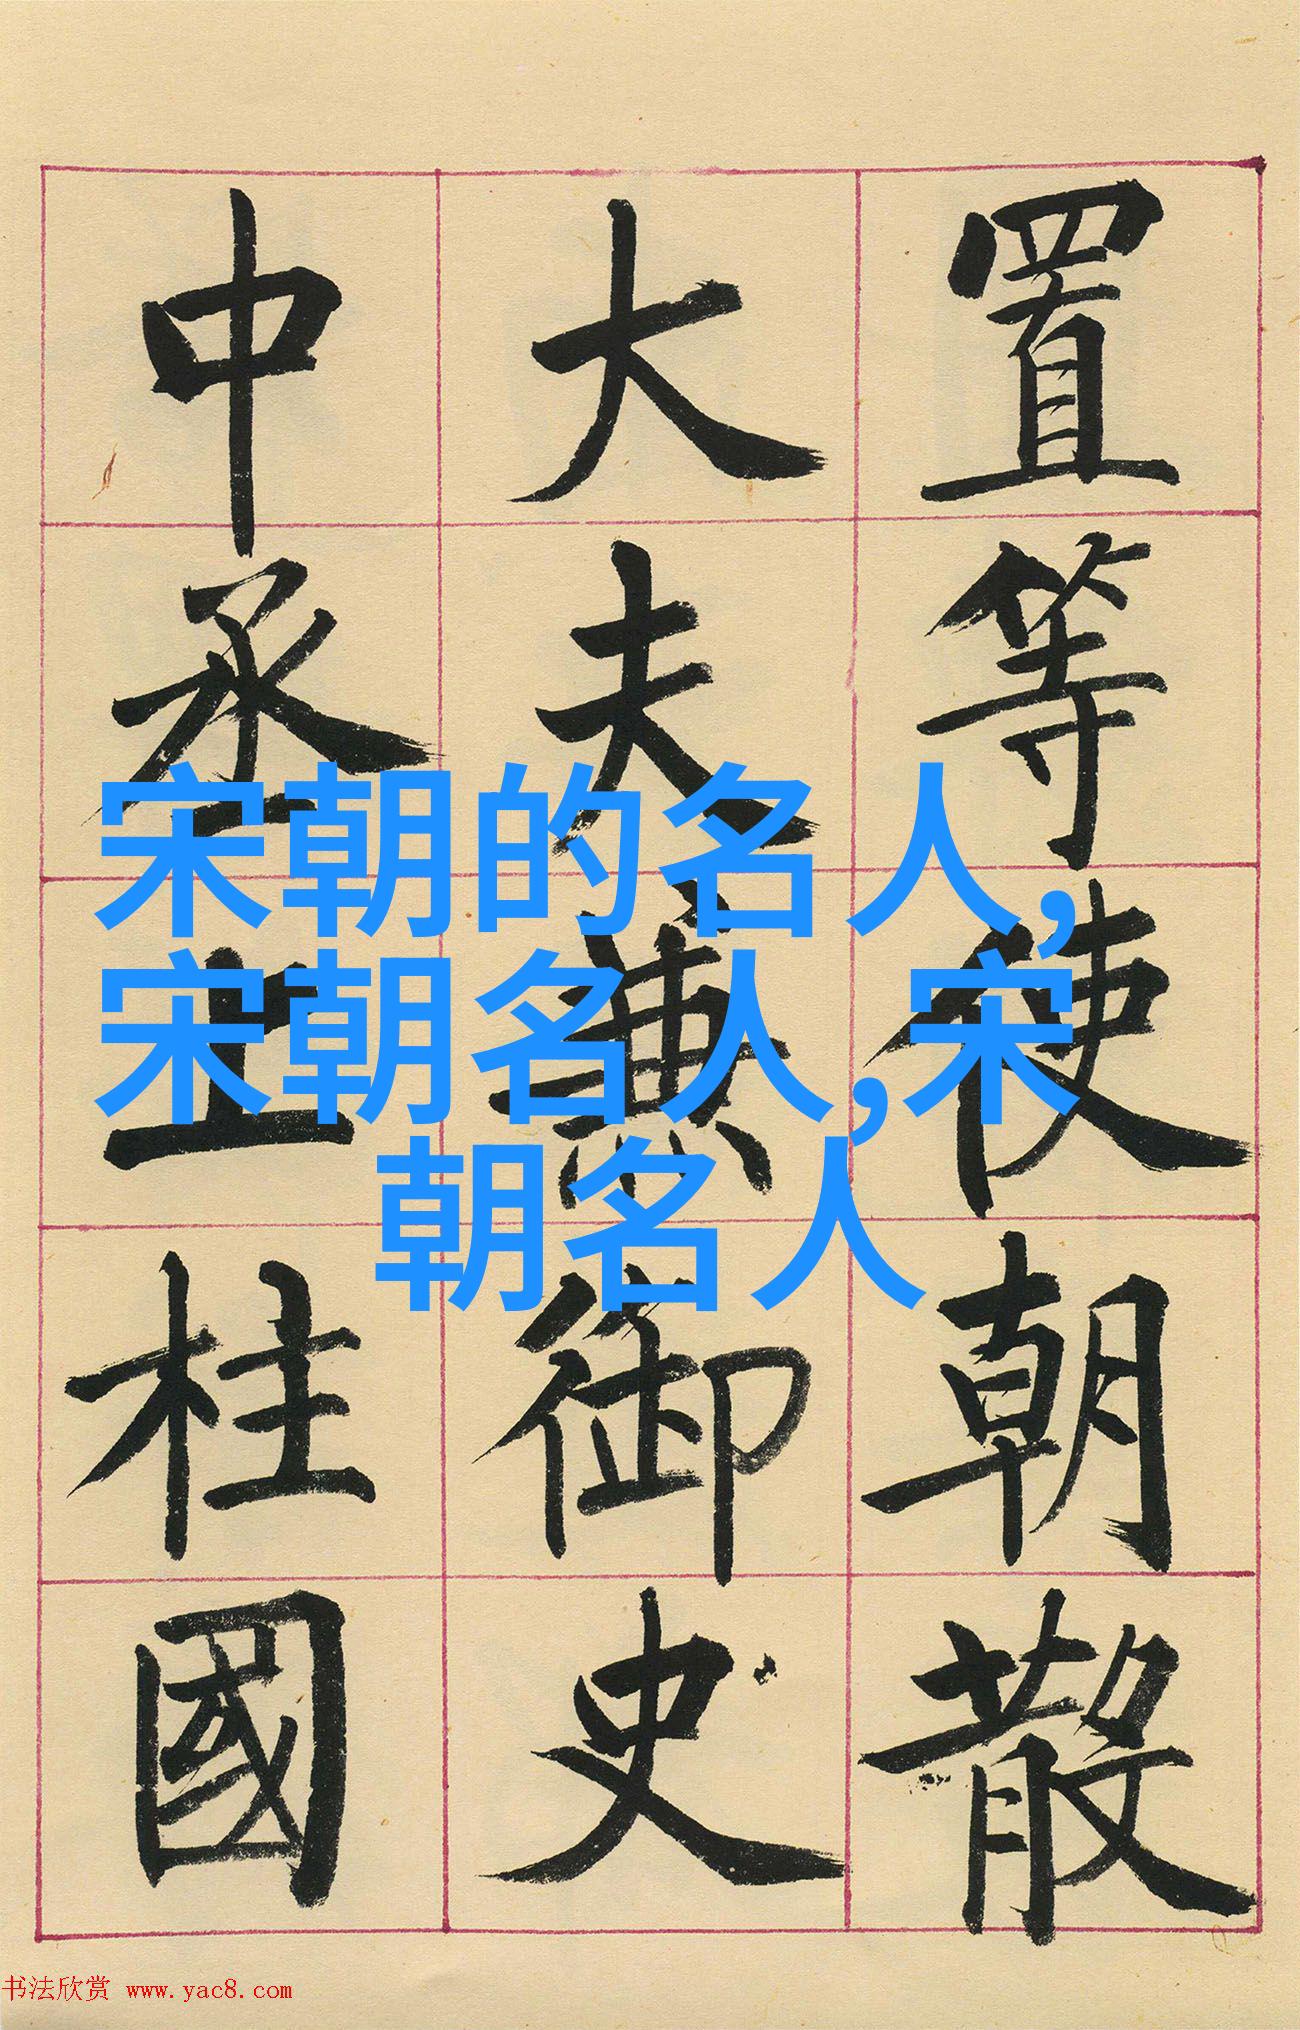 置等使朝散
大夫兼御史
中丞上柱國
宋朝的名人,
宋朝名人,宋
朝名人
书法欣赏 www.yac8.com